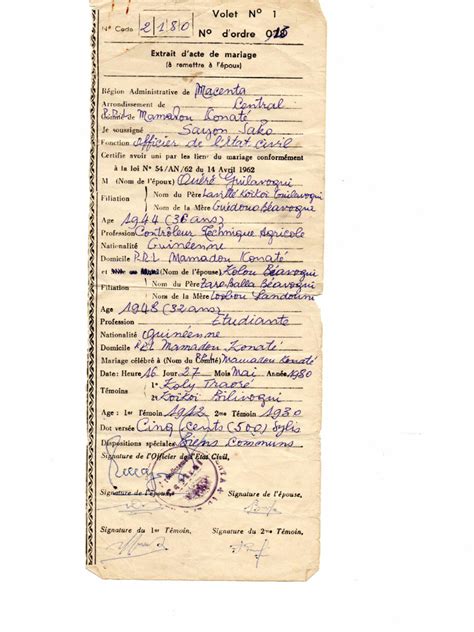 Volet N° 1
N° Code 2180 N° d'ordre 015
Extrait d'acte de mariage
(à remettre à l'époux)
Région Administrative de Macenta
Arrondissement de Central
P.R.L. Mamadou Konaté
Je soussigné Sayon Sako
Fonction officier de l'état civil
Certifie avoir uni par les liens du mariage conformément
à la loi N° 54/AN/62 du 14 Avril 1962
M (Nom de l'époux) Ouéré Guilavogui
Filiation
Nom du Père Koikoi Guilavogui
Nom de la Mère Guédou Béavogui
Age 1944 (36 ans)
Profession Contrôleur Technique Agricole
Nationalité Guinéenne
Domicile P.R.L Mamadou Konaté
et (Nom de l'épouse) Kolou Béavogui
Filiation
Nom du Père Fara Balla Béavogui
Nom de la Mère
Age 1948 (32 ans)
Profession Etudiante
Nationalité Guinéenne
Domicile P.R.L Mamadou Konaté
Mariage célébré à (Nom du Comité) Mamadou Konaté
Date: Heure 16 Jour 27 Mois Mai Année 1980
Témoins
1° Koly Traoré
2° Koikoi Bilivogui
Age : 1er Témoin 1912 2me Témoin 1930
Dot versée Cinq cents (500) Sylis
Dispositions spéciales Biens communs
Signature de l'Officier de l'Etat Civil,
Signature de l'époux, Signature de l'épouse,
Signature du 1er Témoin Signature du 2me Témoin